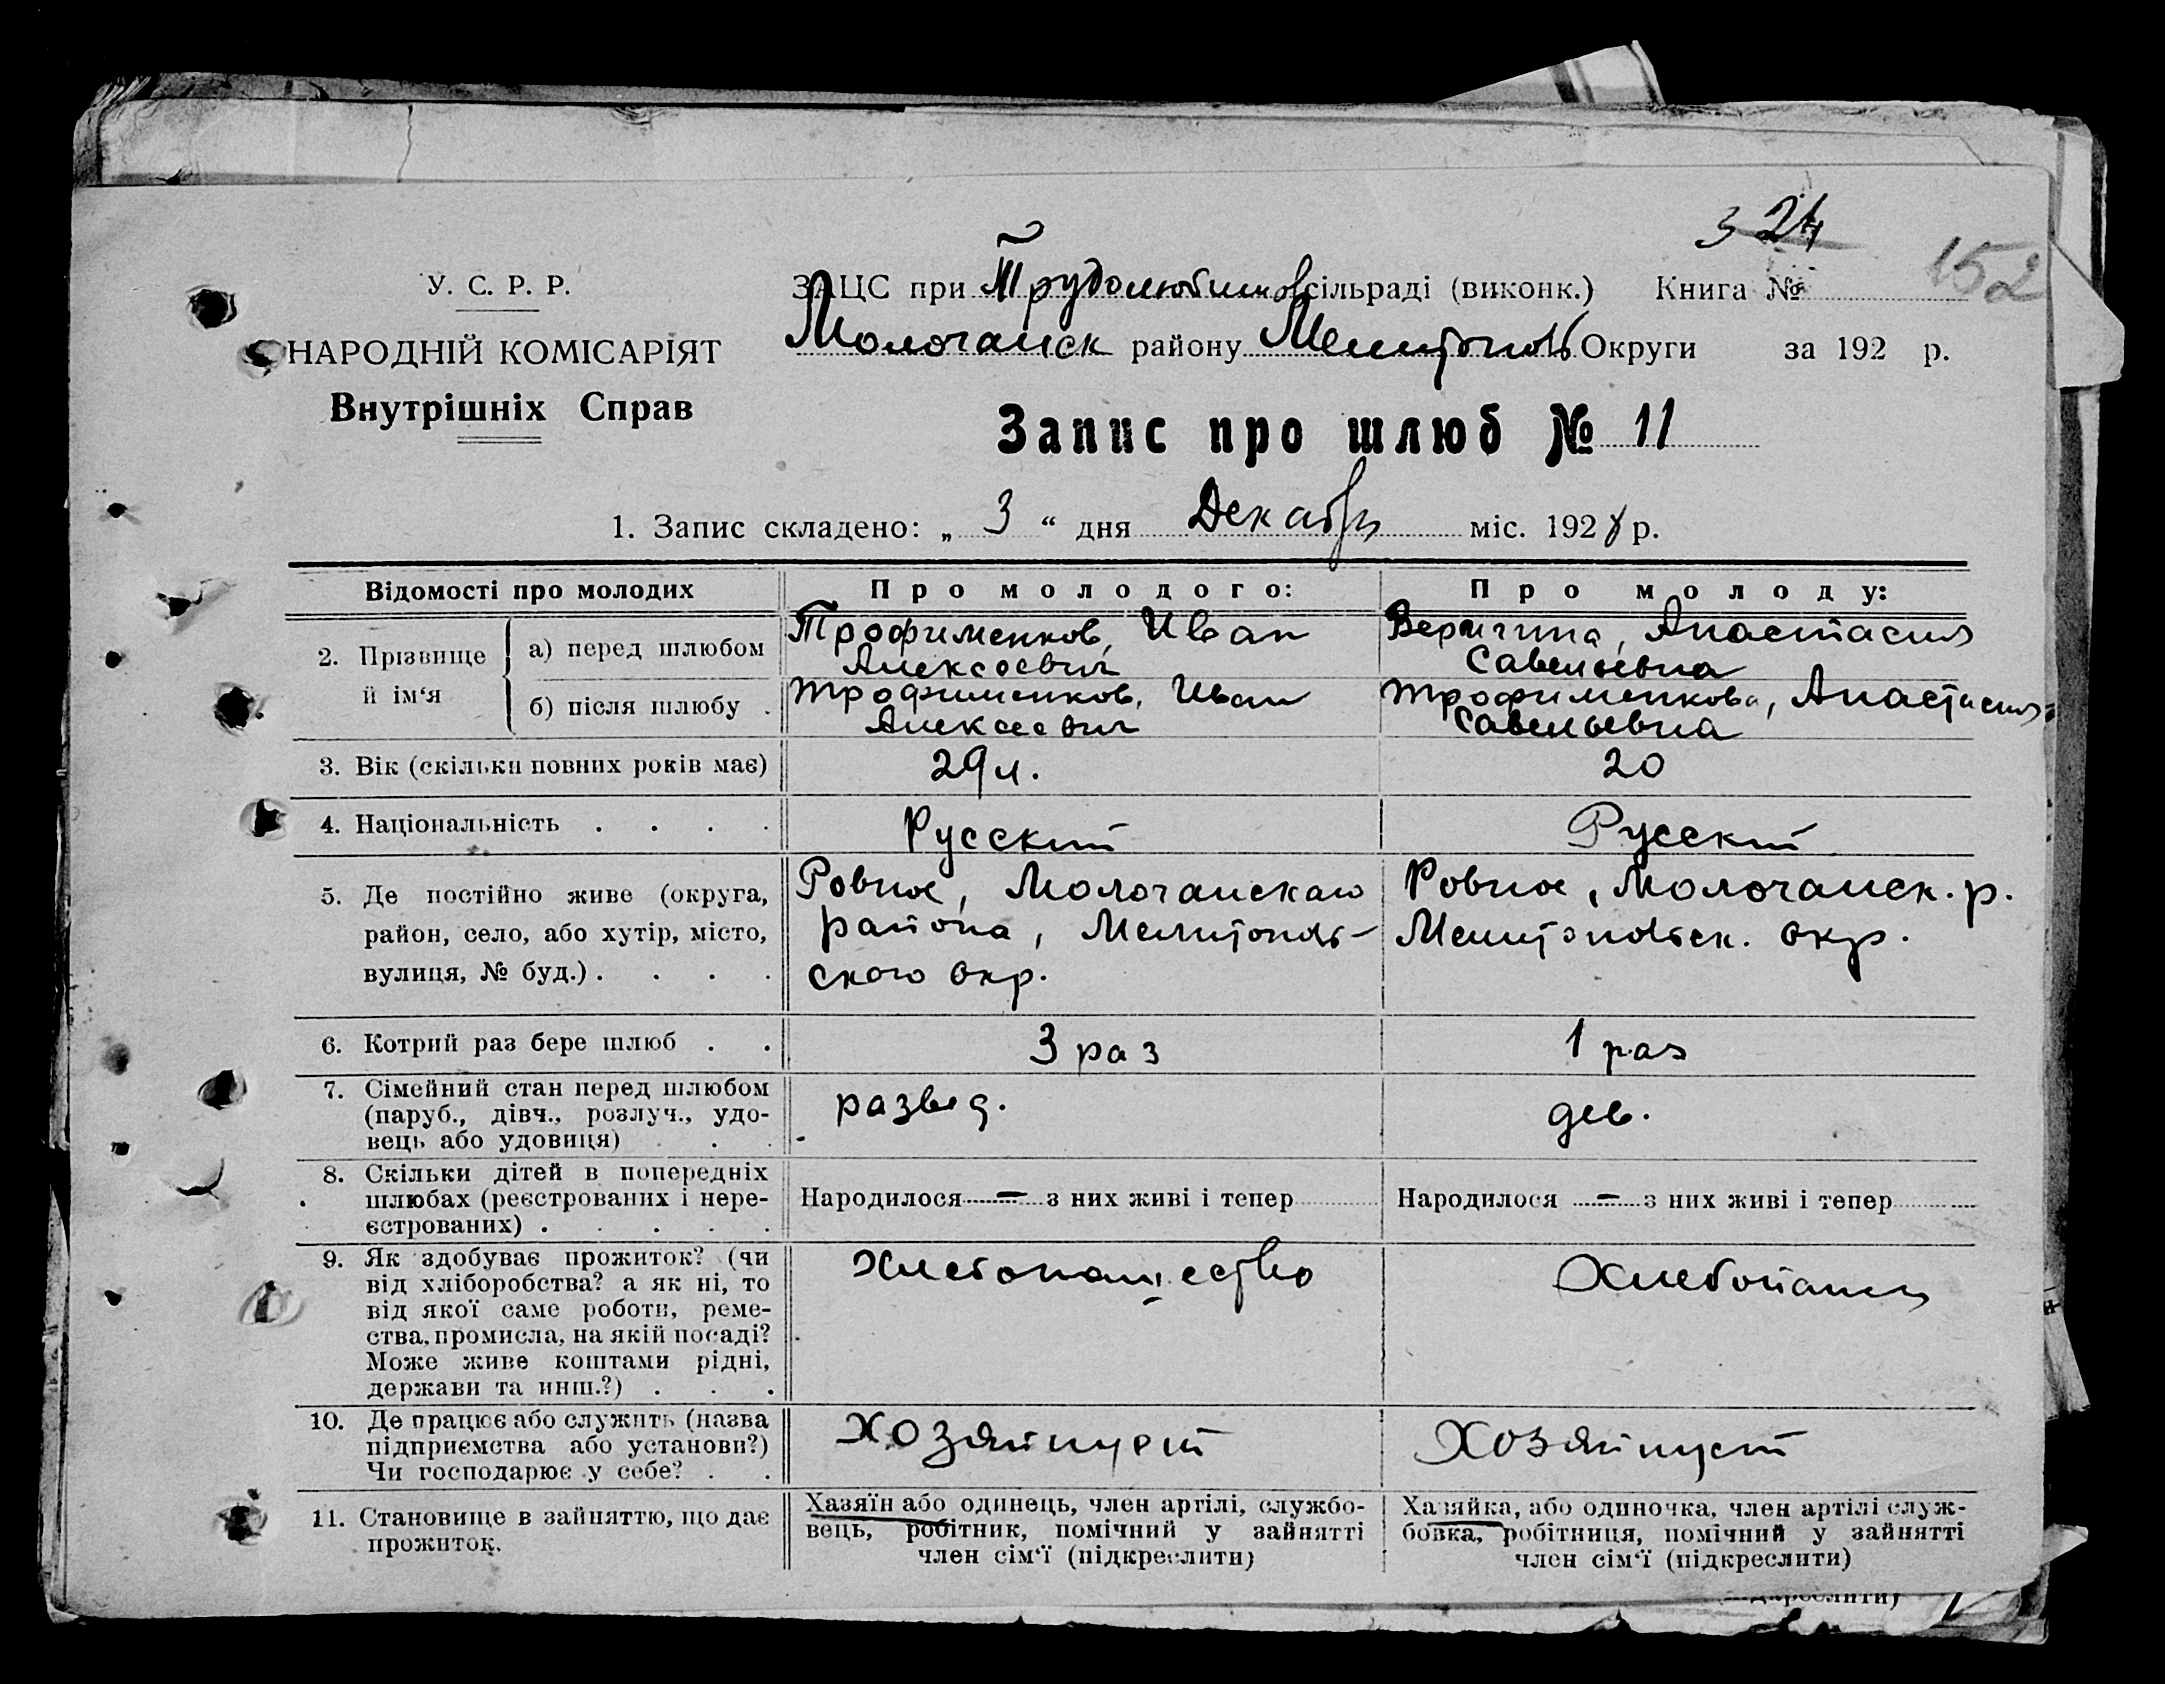 3 24
152
У. С. Р. Р.
НАРОДНІЙ КОМІСАРІЯТ
Внутрішніх Справ
ЗАЦС при Трудолюбимов сільраді (виконк.) Книга №
Молочанск району Мелитопольс Округи за 192 р.
Запис про шлюб № 11
1. Запис складено: „ 3 “ дня Декабря міс. 1928 р.
Відомості про молодих
Про молодого:
Про молоду:
2. Прізвище й ім‘я
а) перед шлюбом
Трофименков, Иван
Алексеевич
Веричина, Анастасия
Савельевна
б) після шлюбу .
Трофименков, Иван
Алексеевич
Трофименкова, Анастасия
Савельевна
3. Вік (скільки повних років має)
29 л.
20
4. Національність . . . .
Русский
Русский
5. Де постійно живе (округа,
район, село, або хутір, місто,
вулиця, № буд.) . . . .
Ровное, Молочанскаго
района, Мелитополь-
ского окр.
Ровное, Молочанск. р.
Мелитопольск. окр.
6. Котрий раз бере шлюб . .
3 раз
1 раз
7. Сімейний стан перед шлюбом
(паруб., дівч., розлуч., удо-
вець або удовиця) . .
развед.
дев.
8. Скільки дітей в попередніх
шлюбах (реєстрованих і нере-
єстрованих) . . . . .
Народилося — з них живі і тепер
Народилося — з них живі і тепер
9. Як здобуває прожиток? (чи
від хліборобства? а як ні, то
від якої саме роботи, реме-
ства, промисла, на якій посаді?
Може живе коштами рідні,
держави та инш.?) . . .
Хлебопашество
Хлебопаш
10. Де працює або служить (назва
підприємства або установи?)
Чи господарює у себе? . .
Хозяйнует
Хозяйнует
11. Становище в зайняттю, що дає
прожиток.
Хазяїн або одинець, член артілі, службо-
вець, робітник, помічний у зайнятті
член сім‘ї (підкреслити)
Хазяйка, або одиночка, член артілі служ-
бовка, робітниця, помічний у зайнятті
член сім‘ї (підкреслити)